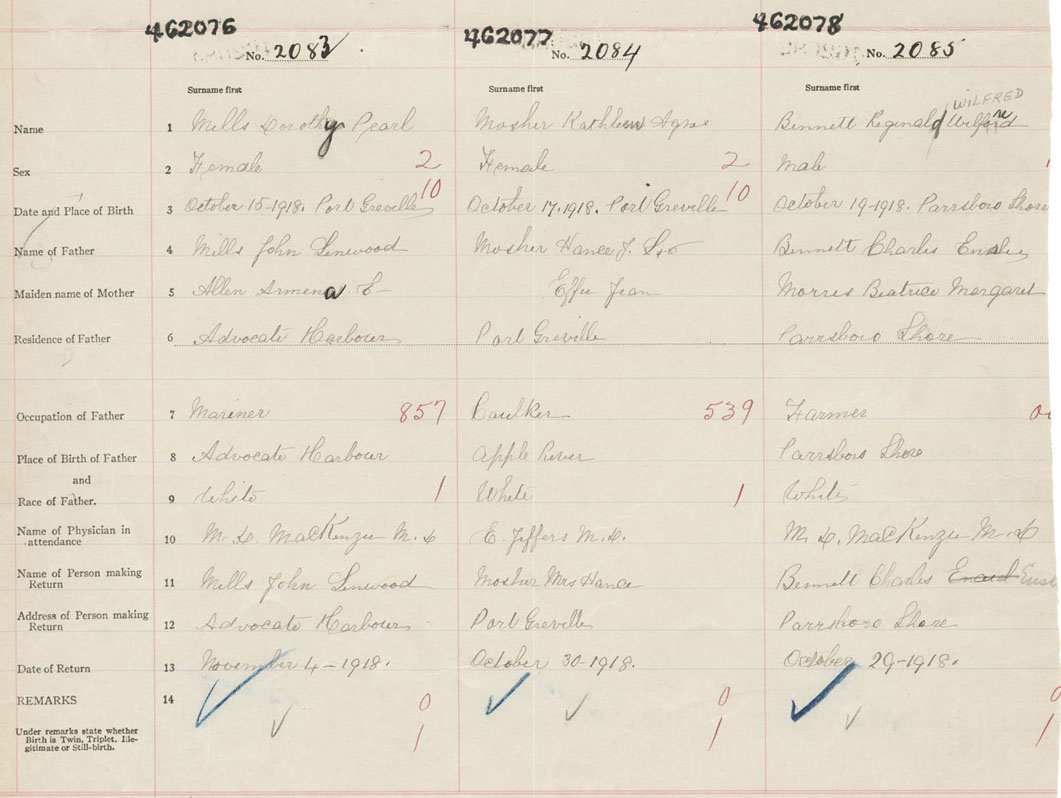 462076 462077 462078
No. 2083 No. 2084 No. 2085
Surname first Surname first Surname first
WILFRED
Name 1 Mills Dorothy Pearl Mosher Kathleen Agnes Bennett Reginald
Sex 2 Female 2 Female 2 Male
Date and Place of Birth 3 October 15-1918. Port Greville 10 October 17, 1918. Port Greville 10 October 19-1918. Parrsboro Shore
Name of Father 4 Mills John Linwood Mosher Hance J. Bennett Charles
Maiden name of Mother 5 Allen Armena E- Effie Jean Morris Beatrice Margaret
Residence of Father 6 Advocate Harbour Port Greville Parrsboro Shore
Occupation of Father 7 Mariner 857 Caulker 539 Farmer
Place of Birth of Father 8 Advocate Harbour Apple River Parrsboro Shore
and
Race of Father. 9 White 1 White 1 White
Name of Physician in attendance 10 M. D. MacKenzie M. D E. Jeffers M. D. M. D. MacKenzie M. D
Name of Person making Return 11 Mills John Linwood Mosher Mrs Hance Bennett Charles
Address of Person making Return 12 Advocate Harbour Port Greville Parrsboro Shore
Date of Return 13 November 4-1918. October 30-1918. October 29-1918.
REMARKS 14 0 0 0
Under remarks state whether Birth is Twin, Triplet, Ille-
gitimate or Still-birth. 1 1 1